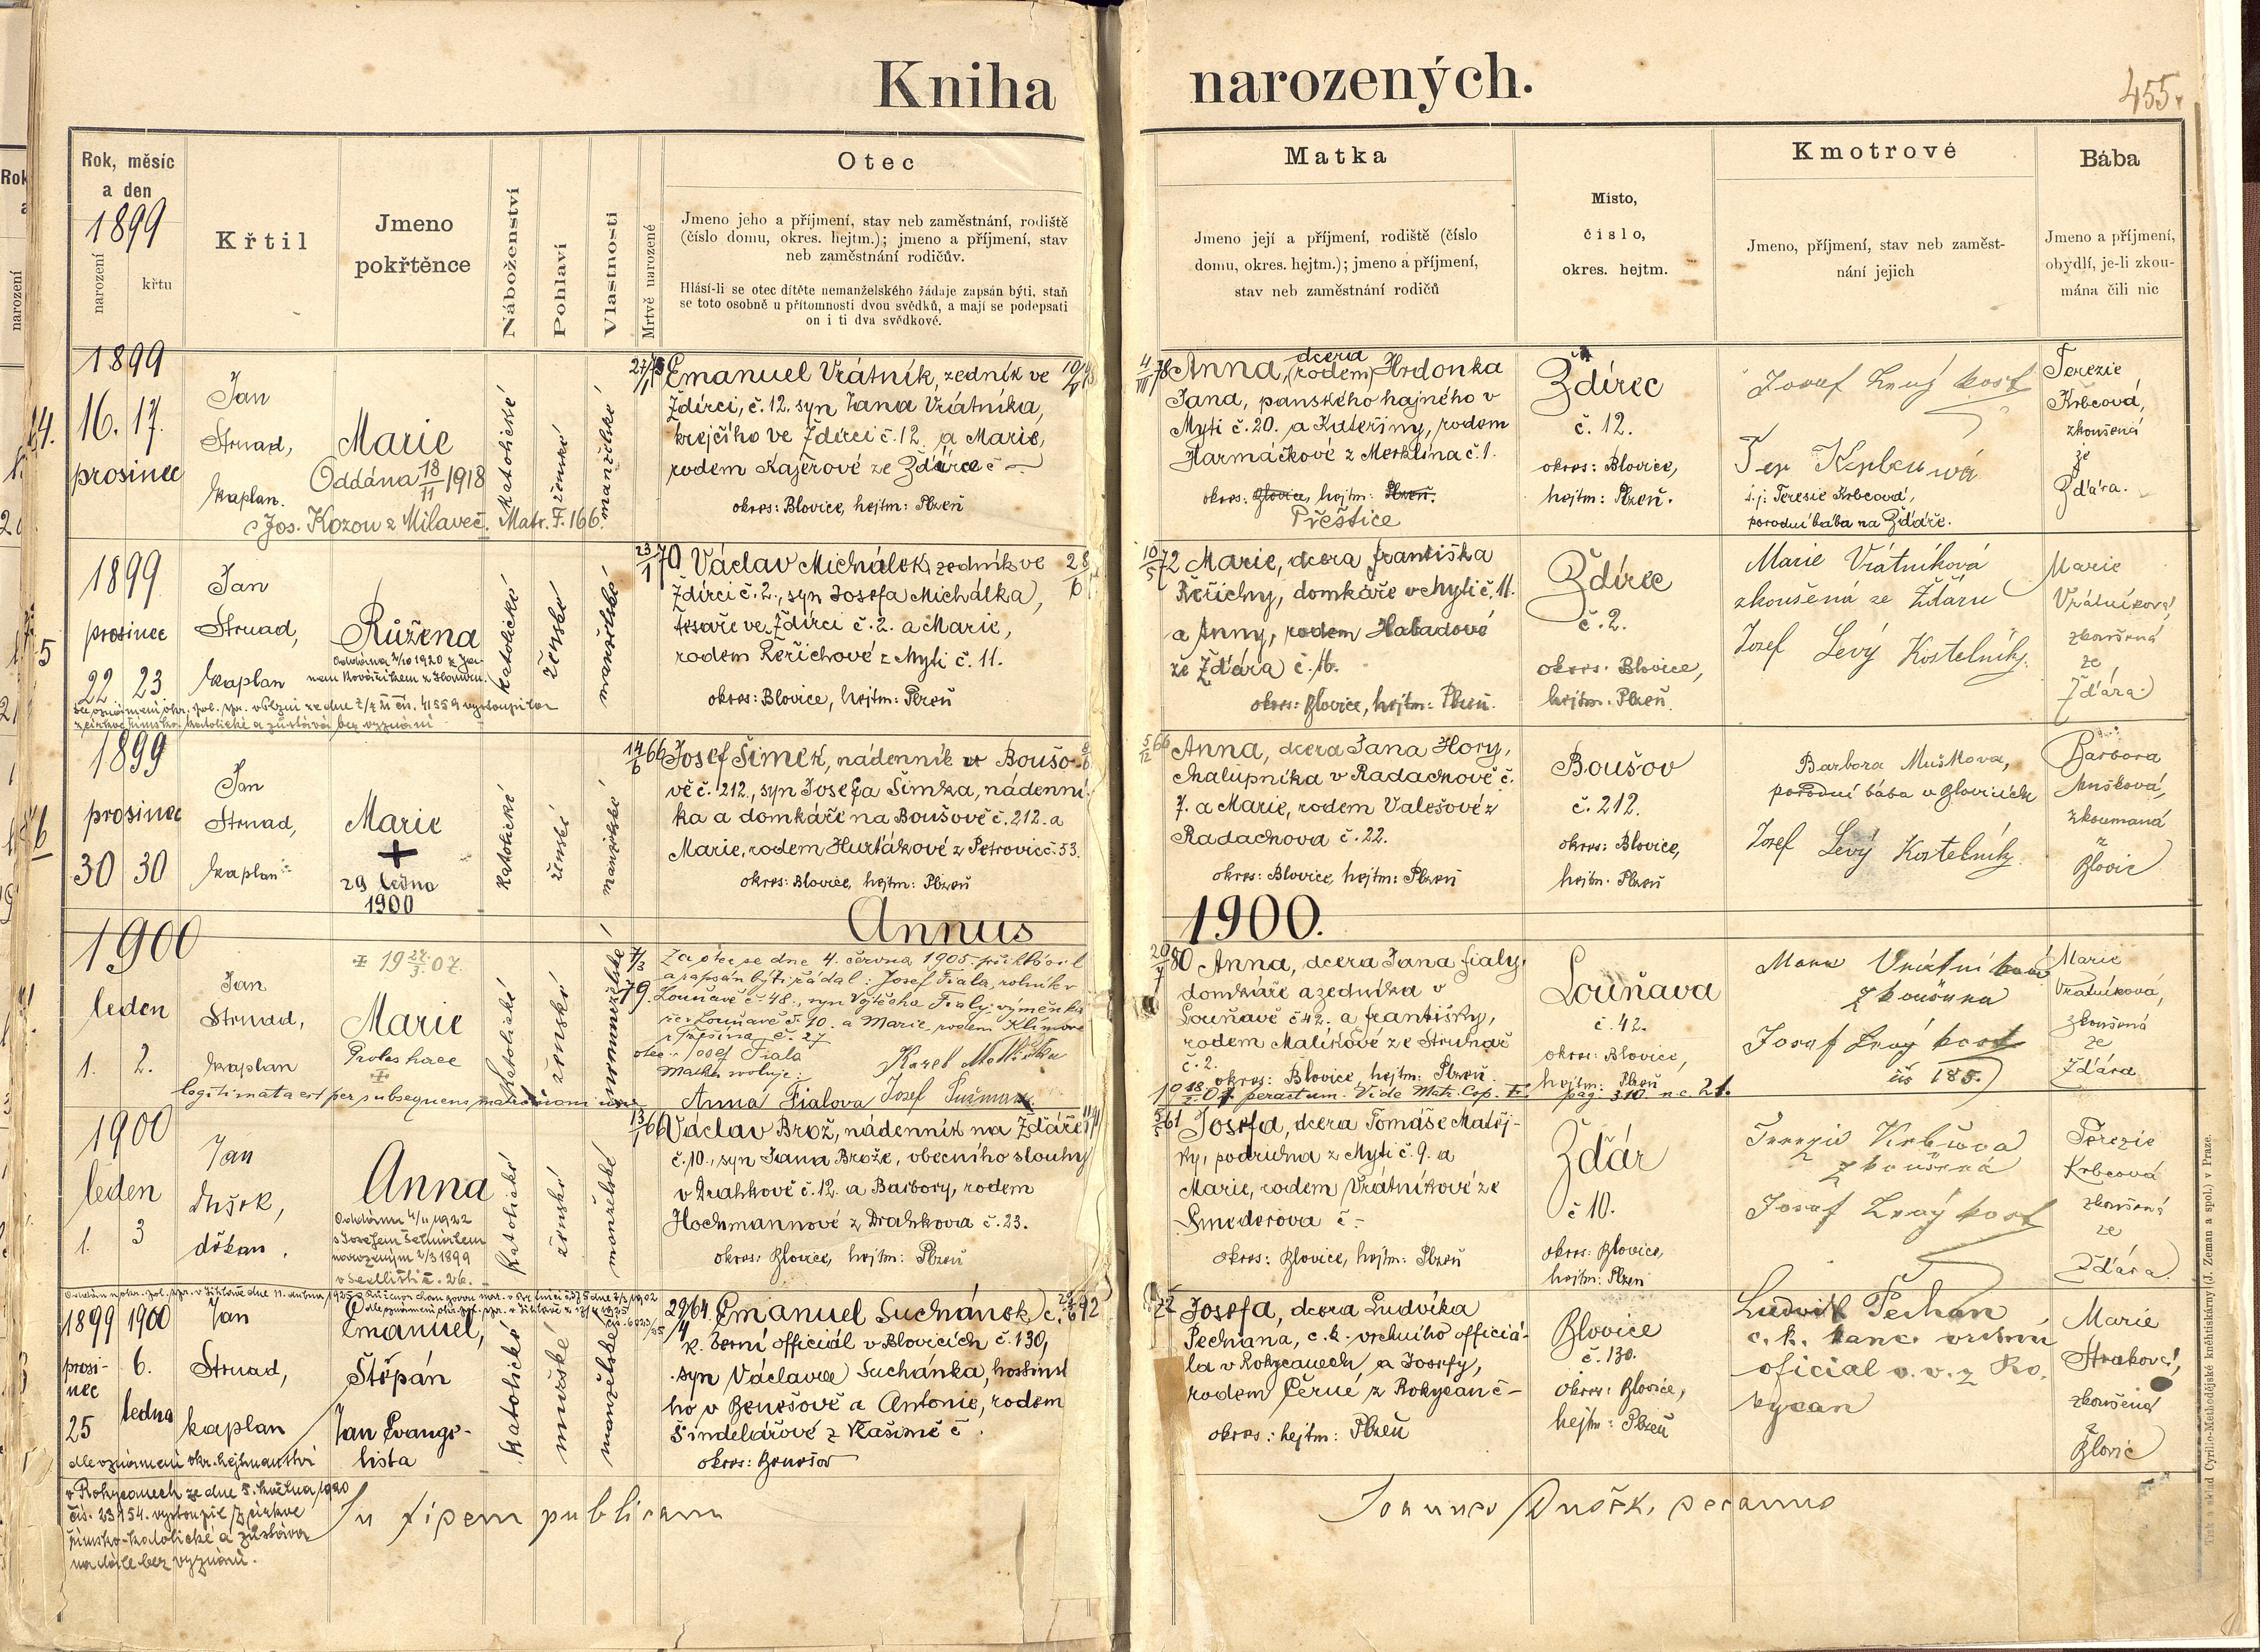 Kniha narozených.
455.
Rok, měsíc
a den
1899
narození
křtu
Křtil
Jmeno
pokřtěnce
Náboženství
Pohlaví
Vlastnosti
Mrtvě narozené
Otec
Jmeno jeho a příjmení, stav neb zaměstnání, rodiště
(číslo domu, okres. hejtm.); jmeno a příjmení, stav
neb zaměstnání rodičův.
Hlásí-li se otec dítěte nemanželského žádaje zapsán býti, staň
se toto osobně u přítomnosti dvou svědků, a mají se podepsati
on i ti dva svědkové.
Matka
Jmeno její a příjmení, rodiště (číslo
domu, okres. hejtm.); jmeno a příjmení,
stav neb zaměstnání rodičů
Místo,
číslo,
okres. hejtm.
Kmotrové
Jmeno, příjmení, stav neb zaměst-
nání jejich
Bába
Jmeno a příjmení,
obydlí, je-li zkou-
mána čili nic
1899
16. 17.
prosinec
Jan
Strnad,
kaplan.
Marie
Oddána 18/11 1918
s Jos. Kozou z Milaveč. Matr. F. 166.
katolické
ženské
manželské
Emanuel Vrátník, zedník ve
Ždírci, č. 12. syn Jana Vrátníka,
krejčího ve Ždírci č. 12. a Marie,
rodem Kajerové ze Žďárce č –
okres: Blovice, hejtm: Plzeň
4/III 78
Anna, dcera (rodem) Hrdonka
Jana, panského hajného v
Mytí č. 20. a Kateřiny, rodem
Harmáčkové z Merklína č. 1.
okres: Blovice, hejtm: Plzeň.
Přeštice
Ždírec
č. 12.
okres: Blovice,
hejtm: Plzeň.
Josef Levý kost
t. j. Teresie Krbcová,
porodní bába na Žďáře.
Terezie
Krbcová,
zkoušená
ze
Žďára.
1899
prosinec
22 23
Jan
Strnad,
kaplan
Růžena
katolické
ženské
manželské
23/1 70
Václav Michálek, zedník ve
Ždírci č. 2., syn Josefa Michálka,
tesaře ve Ždírci č. 2. a Marie,
rodem Řeřichové z Mytí č. 11.
okres: Blovice, hejtm: Plzeň
10/5 72
Marie, dcera Františka
Řeřichy, domkáře v Mytí č. 11.
a Anny, rodem Habadové
ze Žďára č. 16.
okres: Blovice, hejtm: Plzeň.
Ždírec
č. 2.
okres: Blovice,
hejtm: Plzeň.
Marie Vrátníková
zkoušená ze Žďáru
Josef Levý Kostelník
Marie
Vrátníková,
zkoušená
ze
Žďára
1899
prosinec
30 30
Jan
Strnad,
kaplan
Marie
+
29 ledna
1900
katolické
ženské
manželské
14/6 66
Josef Šimek, nádenník v Boušo-
vě č. 212., syn Josefa Šimka, nádenní-
ka a domkáře na Boušově č. 212. a
Marie, rodem Hurťákové z Petrovic č. 53.
okres: Blovice, hejtm: Plzeň
5/12 66
Anna, dcera Jana Hory,
chalupníka v Radachově č.
7. a Marie, rodem Valešové z
Radachova č. 22.
okres: Blovice, hejtm: Plzeň
Boušov
č. 212.
okres: Blovice,
hejtm: Plzeň
Barbora Mušková,
porodní bába v Blovicích
Josef Levý Kostelník
Barbora
Mušková,
zkoumaná
z
Blovic
Annus 1900.
1900
leden
1. 2.
Jan
Strnad,
kaplan
Marie
katolické
ženské
nemanželské
7/3 79
Za otce se dne 4. června 1905 přihlásil
a zapsán býti žádal: Josef Fiala, rolník v
Louňavě č. 48., syn Vojtěcha Fialy, výměnkáře
v Louňavě č. 10. a Marie, rodem Klimové
otec: Josef Fiala
Matka svoluje:
Anna Fialova
legitimata est per subsequens matrimonium
Anna, dcera Jana Fialy,
domkáře a zedníka v
Louňavě č. 42. a Františky,
rodem Malíkové ze Struhař
č. 2.
okres: Blovice, hejtm: Plzeň
peractum. Vide Matr. Cop. pag. 310 n. c. 21.
Louňava
č. 42.
okres: Blovice,
hejtm: Plzeň
Josef Levý kost
Marie
Vrátníková,
zkoušená
ze
Žďára
1900
leden
1. 3
Jan
Dušek,
děkan.
Anna
katolické
ženské
manželské
13/1 66
Václav Brož, nádenník na Žďáře
č. 10., syn Jana Brože, obecního slouhy
v Drahkově č. 12. a Barbory, rodem
Hochmannové z Drahkova č. 23.
okres: Blovice, hejtm: Plzeň
Josefa, dcera Tomáše Matěj-
ky, podruha z Mytí č. 9. a
Marie, rodem Vrátníkové ze
Smederova č –
okres: Blovice, hejtm: Plzeň
Žďár
č 10.
okres: Blovice,
hejtm: Plzeň
Josef Levý kost
Terezie
Krbcová
zkoušená
ze
Žďára.
1899 1900
prosi-
nec
6.
ledna
25
Jan
Strnad,
kaplan
Emanuel,
Štěpán
Jan Evange-
lista
katolické
mužské
manželské
29/4 64
Emanuel Suchánek, c.
k. berní officiál v Blovicích č. 130,
syn Václava Suchánka, hostinské-
ho v Benešově a Antonie, rodem
Šindelářové z
okres: Benešov
Josefa, dcera Ludvíka
Pechana, c. k. vrchního officiá-
la v Rokycanech, a Josefy,
rodem Černé z Rokycan č –
okres: hejtm: Plzeň
Blovice
č. 130.
okres: Blovice,
hejtm: Plzeň
Ludvík Pechan
c. k. kanc. vrchní
oficial v. v. z Ro-
kycan
Marie
Straková,
zkoušená
z
Blovic
dle oznámení okr. hejtmanství
v Rokycanech ze dne 5. května 1920
čís. 23154. vystoupil z církve
římsko-katolické a zůstává
nadále bez vyznání.
In fidem publicam
Joannes Dušek, decanus
Tisk a sklad Cyrillo-Methodějské knihtiskárny (J. Zeman a spol.) v Praze.